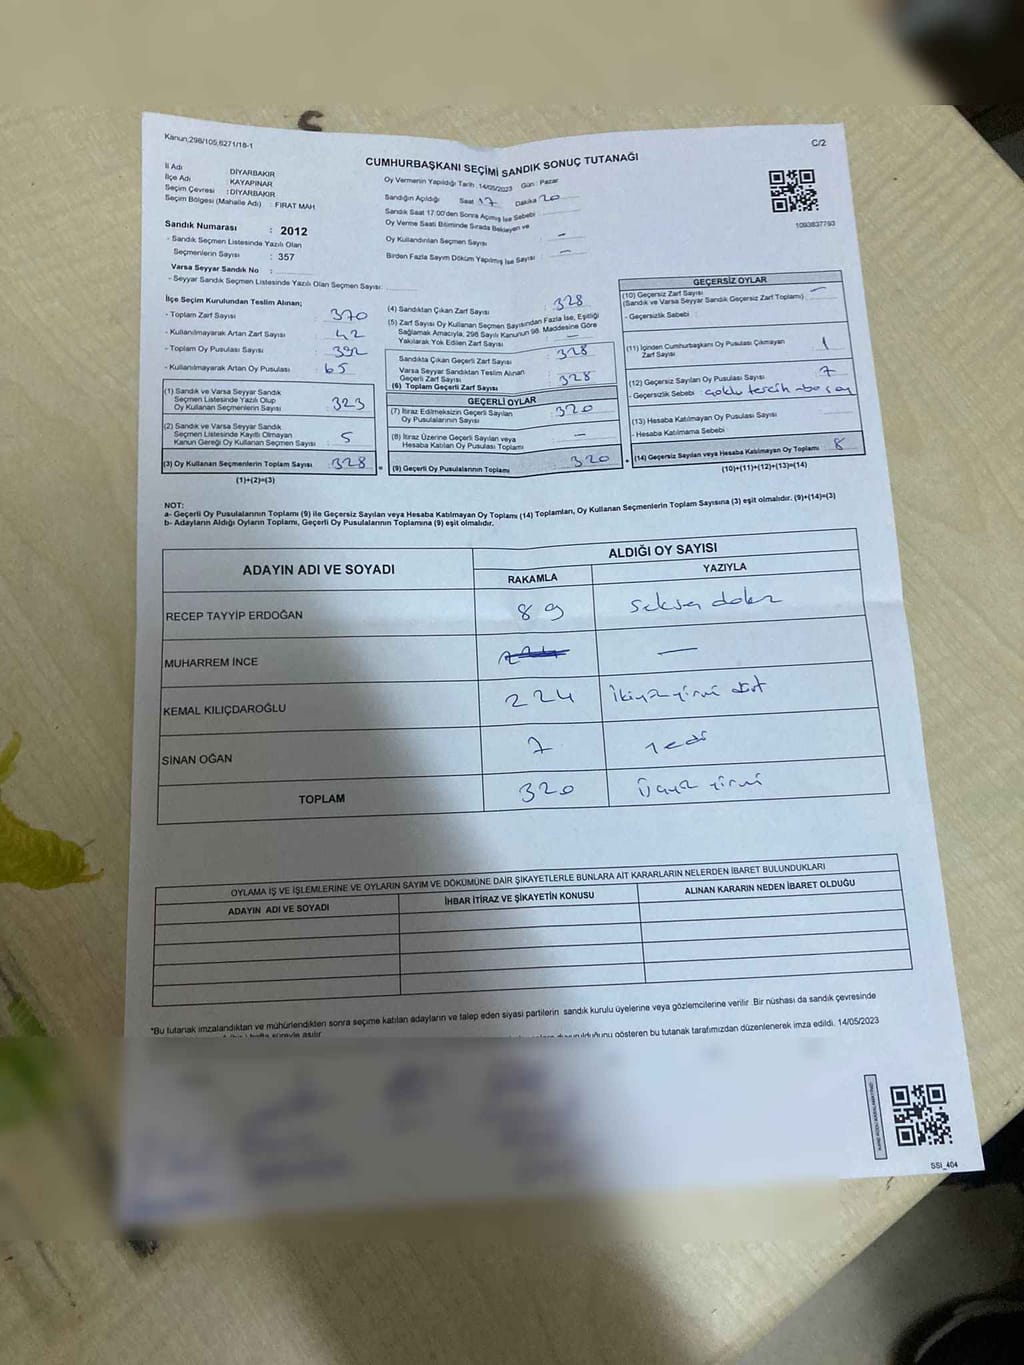 Kanun,298/105,6271/18-1
C/2
CUMHURBAŞKANI SEÇİMİ SANDIK SONUÇ TUTANAĞI
İl Adı : DİYARBAKIR
İlçe Adı : KAYAPINAR
Seçim Çevresi : DİYARBAKIR
Seçim Bölgesi (Mahalle Adı) : FIRAT MAH
Sandık Numarası : 2012
- Sandık Seçmen Listesinde Yazılı Olan
Seçmenlerin Sayısı : 357
Varsa Seyyar Sandık No :
- Seyyar Sandık Seçmen Listesinde Yazılı Olan Seçmen Sayısı:
Oy Vermenin Yapıldığı Tarih :14/05/2023 Gün : Pazar
Sandığın Açıldığı Saat 17 Dakika 20
Sandık Saat 17:00'den Sonra Açılmış İse Sebebi :
Oy Verme Saati Bitiminde Sırada Bekleyen ve
Oy Kullandırılan Seçmen Sayısı : -
Birden Fazla Sayım Döküm Yapılmış İse Sayısı : -
1093837793
İlçe Seçim Kurulundan Teslim Alınan;
- Toplam Zarf Sayısı : 370
- Kullanılmayarak Artan Zarf Sayısı : 42
- Toplam Oy Pusulası Sayısı : 392
- Kullanılmayarak Artan Oy Pusulası : 65
(1) Sandık ve Varsa Seyyar Sandık
Seçmen Listesinde Yazılı Olup
Oy Kullanan Seçmenlerin Sayısı : 323
(2) Sandık ve Varsa Seyyar Sandık
Seçmen Listesinde Kayıtlı Olmayan
Kanun Gereği Oy Kullanan Seçmen Sayısı : 5
(3) Oy Kullanan Seçmenlerin Toplam Sayısı : 328
(1)+(2)=(3)
(4) Sandıktan Çıkan Zarf Sayısı : 328
(5) Zarf Sayısı Oy Kullanan Seçmen Sayısından Fazla İse, Eşitliği
Sağlamak Amacıyla, 298 Sayılı Kanunun 98. Maddesine Göre
Yakılarak Yok Edilen Zarf Sayısı : -
Sandıkta Çıkan Geçerli Zarf Sayısı : 328
Varsa Seyyar Sandıktan Teslim Alınan
Geçerli Zarf Sayısı
(6) Toplam Geçerli Zarf Sayısı : 328
GEÇERLİ OYLAR
(7) İtiraz Edilmeksizin Geçerli Sayılan
Oy Pusulalarının Sayısı : 320
(8) İtiraz Üzerine Geçerli Sayılan veya
Hesaba Katılan Oy Pusulası Toplamı : -
(9) Geçerli Oy Pusulalarının Toplamı : 320
GEÇERSİZ OYLAR
(10) Geçersiz Zarf Sayısı
(Sandık ve Varsa Seyyar Sandık Geçersiz Zarf Toplamı) : -
- Geçersizlik Sebebi :
(11) İçinden Cumhurbaşkanı Oy Pusulası Çıkmayan
Zarf Sayısı : 1
(12) Geçersiz Sayılan Oy Pusulası Sayısı : 7
- Geçersizlik Sebebi : çoklu tercih
(13) Hesaba Katılmayan Oy Pusulası Sayısı :
- Hesaba Katılmama Sebebi :
(14) Geçersiz Sayılan veya Hesaba Katılmayan Oy Toplamı : 8
(10)+(11)+(12)+(13)=(14)
NOT:
a- Geçerli Oy Pusulalarının Toplamı (9) ile Geçersiz Sayılan veya Hesaba Katılmayan Oy Toplamı (14) Toplamları, Oy Kullanan Seçmenlerin Toplam Sayısına (3) eşit olmalıdır. (9)+(14)=(3)
b- Adayların Aldığı Oyların Toplamı, Geçerli Oy Pusulalarının Toplamına (9) eşit olmalıdır.
ADAYIN ADI VE SOYADI
ALDIĞI OY SAYISI
RAKAMLA YAZIYLA
RECEP TAYYİP ERDOĞAN 89 seksen dokuz
MUHARREM İNCE —
KEMAL KILIÇDAROĞLU 224 ikiyüz yirmi dört
SİNAN OĞAN 7 yedi
TOPLAM 320 üçyüz yirmi
OYLAMA İŞ VE İŞLEMLERİNE VE OYLARIN SAYIM VE DÖKÜMÜNE DAİR ŞİKAYETLERLE BUNLARA AİT KARARLARIN NELERDEN İBARET BULUNDUKLARI
ADAYIN ADI VE SOYADI İHBAR İTİRAZ VE ŞİKAYETİN KONUSU ALINAN KARARIN NEDEN İBARET OLDUĞU
*Bu tutanak imzalandıktan ve mühürlendikten sonra seçime katılan adayların ve talep eden siyasi partilerin sandık kurulu üyelerine veya gözlemcilerine verilir .Bir nüshası da sandık çevresinde
hafta süreyle asılır duyurulduğunu gösteren bu tutanak tarafımızdan düzenlenerek imza edildi. 14/05/2023
SSI_404